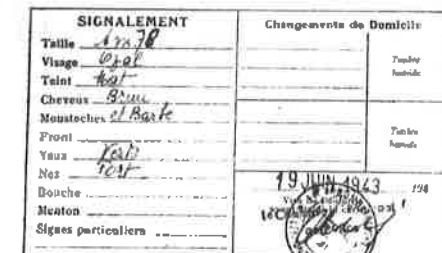 SIGNALEMENT
Taille 1m78
Visage Oval
Teint Mat
Cheveux Brun
Moustaches et Barbe
Front
Yeux Verts
Nez Fort
Bouche
Menton
Signes particuliers
Changements de Domicile
Timbre
humide
Timbre
humide
19 JUIN 1943
194